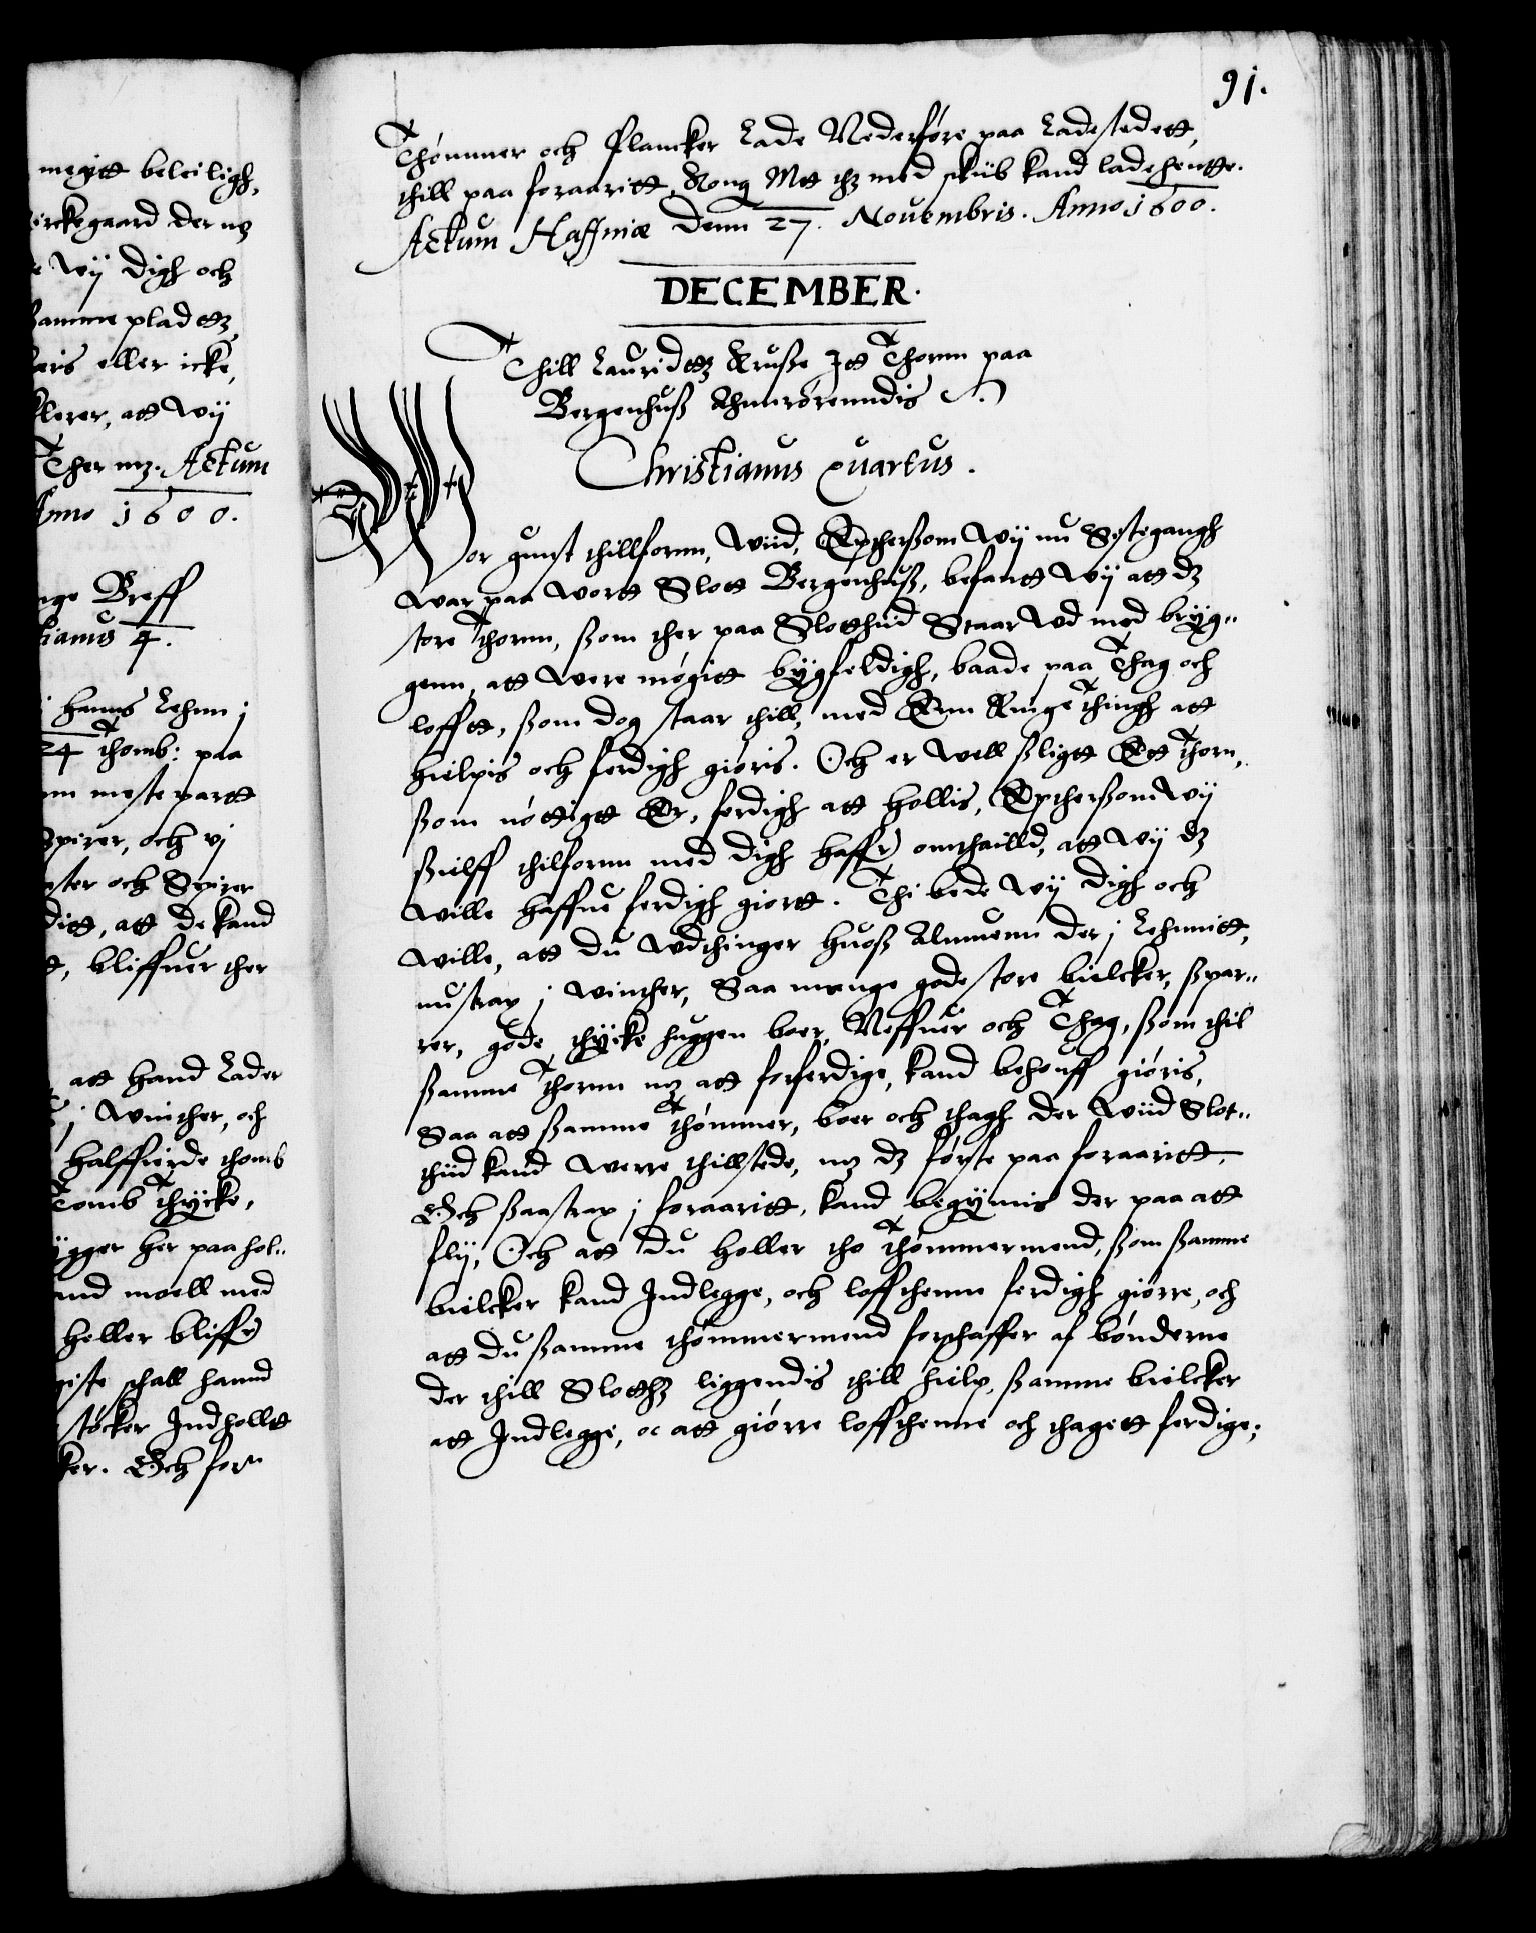 megitt beleiligh,
irckegaard der mz
wij digh och
samme pladtz
eller icke,
klerer, att wij
Ther mz. Actum
Anno 1600.
nge Breff
tianus 4.
hanns Lehnn j
24 Thomb: paa
meste partt
Spirer, och vj
och Spirer
ditt, att de kand
bliffuer ther
att hand Lader
j winther, och
halffierde thomb
Tomb Thycke,
ygger her paa hol-
moell med
heller bliffr
schall hannd
støcker Indhollt
ker. Och for
91.
Thømmer och Plancker Lade Nederføre paa Ladestedett,
thill paa foraaritt Kong Mtt thz med skiib kand lade hentte.
Actum Haffniæ Denn 27. Nouembris. Anno 1600.
DECEMBER.
Thill Lauridtz Kruße Jtt Thornn paa
Bergenhuß Anrørenndis
Christianus Quartus.
Wor gunst thillfornn, Wiid, Epthersom Wij nu Sistegangh
war paa wortt Slott Bergenhuß, befantt Wij att dz
store Thornn, ßom ther paa Slotthiid Staar Wd med bryg-
genn, att were møgitt bygfeldigh, baade paa Thag och
lofftt, ßom dog staar thill, med Enn Ringe Thingh att
hielpis och ferdigh giøris. Och er well ßligtt Ett Thorn,
ßom nøttigt Er, ferdigh att hollis, Epthersom Wij
ßielff thilfornn med digh haffr omthailld, att Wij dz
wille haffue ferdigh giortt. Thi bede Wij digh och
wille, att du Wdthinger huoß Almuenn der j Lehnnitt,
nu strax j winther, Saa mange gode store bielcker, ßpar-
rer, gode thycke huggen boer, Neffuer och Thag, ßom thil
ßamme Thornn mz att forferdige, kand behouff giøris,
Saa att ßamme Thømmer, boer och thagh der Wiid Slot-
thiid kand Werre thillstede, mz dz første paa foraaritt,
Och ßaa strax j foraaritt, kand begynnis der paa att
flij, Och att du holler tho Thømmermend, ßom ßamme
bielcker kand Indlegge, och loffthenn ferdigh giørre, och
att du ßamme thømmermend forschaffer af bønderne
der thill Slotthz liggendis thill hielp, ßamme bielcker
att Indlegge, oc att giørre loffthenne och thagett ferdige;